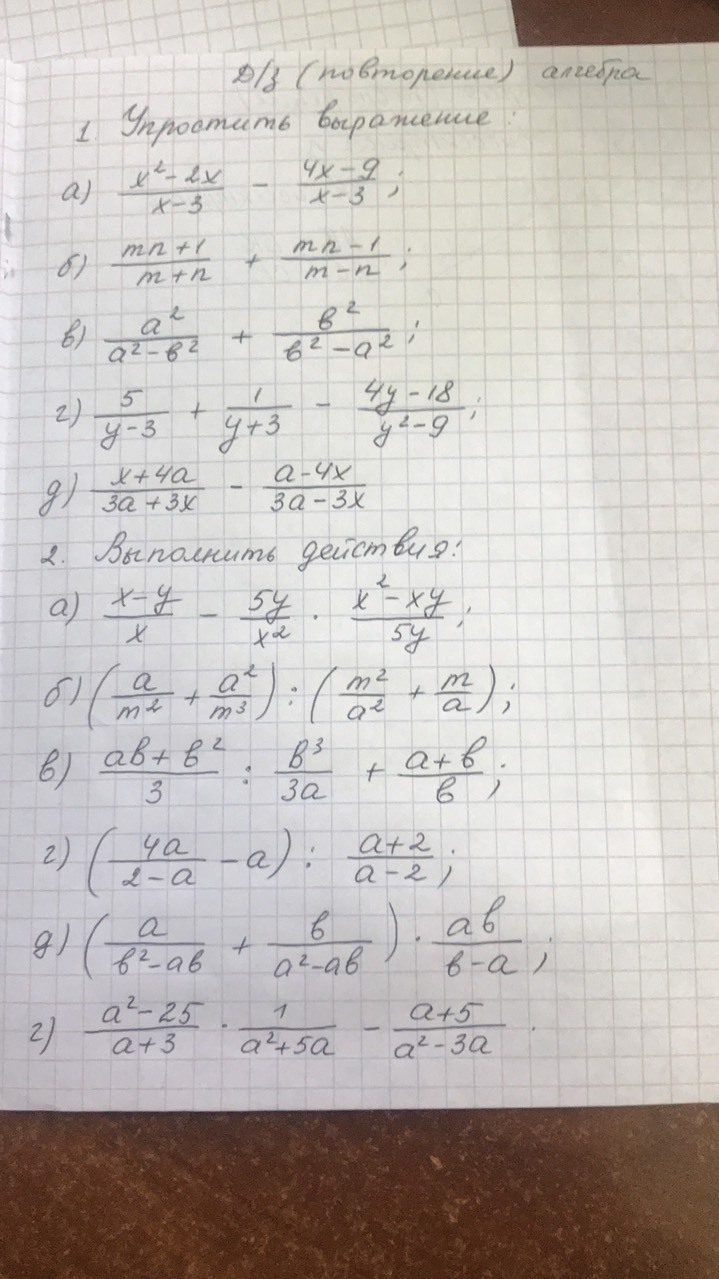 Д/з (повторение) алгебра
1. Упростить выражение:
а) (x² - 2x)/(x - 3) - (4x - 9)/(x - 3);
б) (mn + 1)/(m + n) + (mn - 1)/(m - n);
в) a²/(a² - в²) + в²/(в² - a²);
г) 5/(y - 3) + 1/(y + 3) - (4y - 18)/(y² - 9);
д) (x + 4a)/(3a + 3x) - (a - 4x)/(3a - 3x)
2. Выполнить действия:
а) (x - y)/x - 5y/x² · (x² - xy)/5y;
б) (a/m² + a²/m³) : (m²/a² + m/a);
в) (aв + в²)/3 : в³/3a + (a + в)/в;
г) (4a/(2 - a) - a) : (a + 2)/(a - 2);
д) (a/(в² - aв) + в/(a² - aв)) · aв/(в - a);
г) (a² - 25)/(a + 3) · 1/(a² + 5a) - (a + 5)/(a² - 3a).